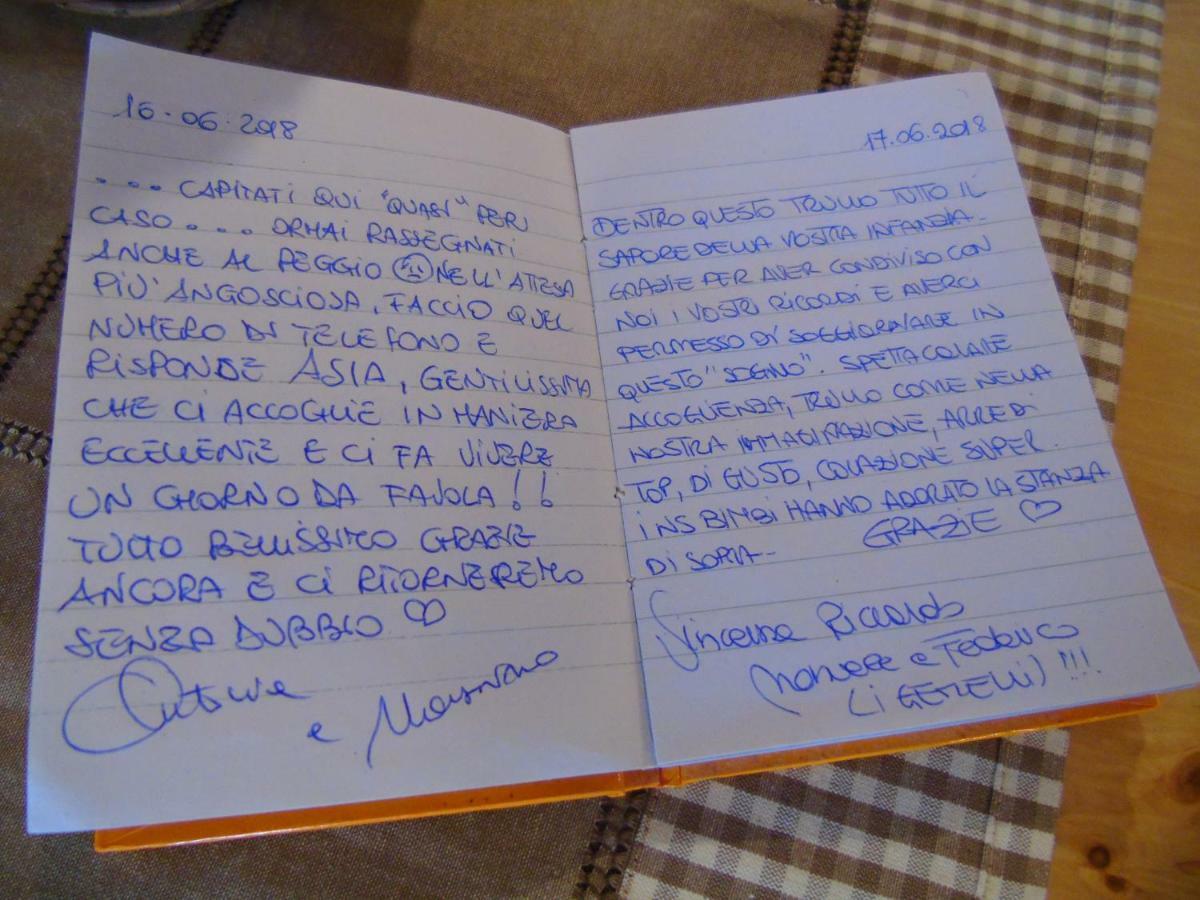 16.06.2018
.... CAPITATI QUI "QUASI" PER
CASO.... ORMAI RASSEGNATI
ANCHE AL PEGGIO NELL'ATTESA
PIÙ ANGOSCIOSA, FACCIO QUEL
NUMERO DI TELEFONO E
RISPONDE ASIA, GENTILISSIMA
CHE CI ACCOGLIE IN MANIERA
ECCELLENTE E CI FA VIVERE
UN GIORNO DA FAVOLA!!
TUTTO BELLISSIMO GRAZIE
ANCORA E CI RITORNEREMO
SENZA DUBBIO ♡
e
17.06.2018
DENTRO QUESTO TRULLO TUTTO IL
SAPORE DELLA VOSTRA INFANZIA.
GRAZIE PER AVER CONDIVISO CON
NOI I VOSTRI RICORDI E AVERCI
PERMESSO DI SOGGIORNARE IN
QUESTO "SOGNO". SPETTACOLARE
ACCOGLIENZA, TRULLO COME NELLA
NOSTRA IMMAGINAZIONE, ARREDI
TOP, DI GUSTO, COLAZIONE SUPER.
I NS BIMBI HANNO ADORATO LA STANZA
DI SOPRA- GRAZIE ♡
Riccardo
e Federico
(I GEMELLI) !!!